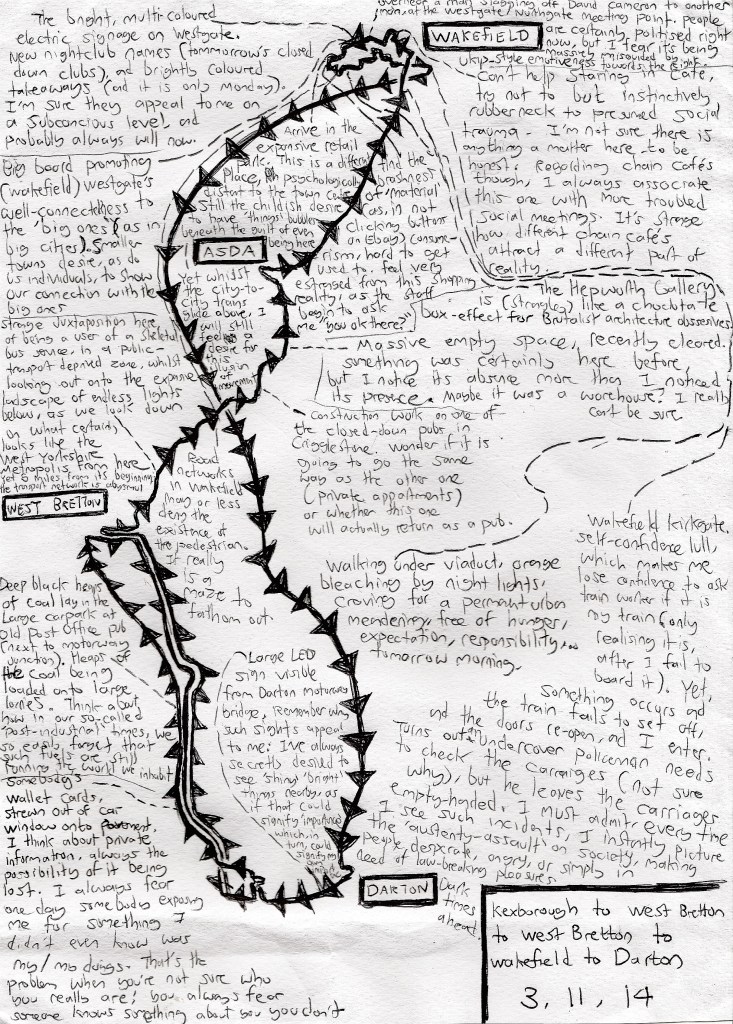 The bright, multi-coloured
electric signage on Westgate.
New nightclub names (tommorrow's closed
down clubs), and brightly coloured
takeaways (and it is only Monday).
I'm sure they appeal to me on
a subconcious level, and
probably always will now.
Big board promoting
(Wakefield) Westgate's
well-connectedness to
the 'big ones' (as in
big cities). Smaller
towns desire, as do
us individuals, to show
our connection with the
big ones
strange juxtaposition here
of being a user of a skeletal
bus service, in a public-
transport deprived zone, whilst
looking out onto the expansive
landscape of endless lights
below, as we look down
on what certainly
looks like the
West Yorkshire
Metropolis, from here
yet 6 miles, from its beginning
the transport network is abysmal
WEST BRETTON
Deep black heaps
of coal lay in the
Large carpark at
old Post Office pub
(next to motorway
junction). Heaps of
the coal being
loaded onto large
lorries. Think about
how in our so-called
'post-industrial' times, we
so easily forget that
such fuels are still
running the world we inhabit
somebody's
wallet cards,
strewn out of car
window onto
I think about private
information, always the
possibility of it being
lost. I always fear
one day somebody exposing
me for something I
didn't even know was
my/ma doings. That's the
problem when you're not sure who
you really are; you always fear
someone knows something about you you don't
Arrive in the
expansive retail
park. This is a different
place, psychologically
distant to the town
Still the childish desire
to have 'things' bubbles
beneath the guilt of even
being here
ASDA
yet whilst
the city-to-
city trains
slide above, I
will still
feel a
desire for
this
illusion of
movement
find the
brashness
of 'material'
as, in not
clicking buttons
on (ebay) consume-
rism, hard to get
used to. feel very
estranged from this shopping
reality, as the staff
begin to ask
me "you ok there?"
Road
networks
in Wakefield
may or less
deny the
existence of
the pedestrian.
It really
is a
maze to
fathom out.
Large LED
sign visible
from Darton motorway
bridge, Remember why
such sights appeal
to me: I've always
secretly desired to
see 'shiny' 'bright'
things nearby, as
if that could
signify importance
which, in
turn, could
signify
overhear a man slagging off David Cameron to another
man, at the westgate/northgate meeting point. people
are certainly politised right
now, but I fear it's being
massively misguided by
ukip-style emotiveness towards the right.
WAKEFIELD
Can't help staring in café,
try not to but instinctively
rubberneck to presumed social
trauma - I'm not sure there is
anything a matter here to be
honest. Regarding chain cafés
though, I always associate
this one with more troubled
social meetings. It's strange
how different chain café's
attract a different part of
reality.
The Hepworth Gallery
is (strangley) like a chocolate
box-effect for Brutalist architecture obsessives
Massive empty space, recently cleared.
something was certainly here before,
but I notice its absense more than I noticed
its presence. Maybe it was a warehouse? I really
can't be sure
Construction work on one of
the closed-down pubs in
Crigglestone. wonder if it is
going to go the same
way as the other one
(private appartments)
or whether this one
will actually return as a pub.
Walking under viaduct, orange
bleaching by night lights,
craving for a permanturban
meandering, free of hunger,
expectation, responsibility...
tomorrow morning.
Wakefield kirkgate.
self-confidence lull,
which makes me
lose confidence to ask
train worker if it is
my train (only
realising it is,
after I fail to
board it). Yet,
something occurs and
the train fails to set off,
and the doors re-open, and I enter.
Turns out undercover policeman needs
to check the carraiges (not sure
why), but he leaves the carriages
empty-handed. I must admit, every time
I see such incidents, I instantly picture
the 'austerity-assault' on society, making
people, desperate, angry, or simply in
need of law-breaking pleasures.
Dark
times
ahead.
DARTON
Kexborough to West Bretton
to West Bretton to
Wakefield to Darton
3, 11, 14